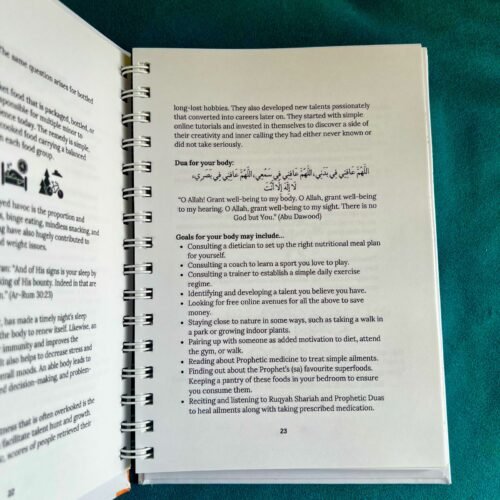 The same question arises for bottled
food that is packaged, bottled, or
responsible for multiple minor to
today. The remedy is simple,
cooked food carrying a balanced
each food group.
havoc is the proportion and
binge eating, mindless snacking, and
have also hugely contributed to
weight issues.
"And of His signs is your sleep by
of His bounty. Indeed in that are
(Ar-Rum 30:23)
has made a timely night's sleep
the body to renew itself. Likewise, an
immunity and improves the
also helps to decrease stress and
moods. An able body leads to
decision-making, and problem-
that is often overlooked is the
facilitate talent hunt and growth.
scores of people retrieved their
22
long-lost hobbies. They also developed new talents passionately
that converted into careers later on. They started with simple
online tutorials and invested in themselves to discover a side of
their creativity and inner calling they had either never known or
did not take seriously.
Dua for your body:
اللَّهُمَّ عَافِنِي فِي بَدَنِي، اللَّهُمَّ عَافِنِي فِي سَمْعِي، اللَّهُمَّ عَافِنِي فِي بَصَرِي،
لَا إِلَهَ إِلَّا أَنْتَ
"O Allah! Grant well-being to my body. O Allah, grant well-being
to my hearing. O Allah, grant well-being to my sight. There is no
God but You." (Abu Dawood)
Goals for your body may include...
• Consulting a dietician to set up the right nutritional meal plan
for yourself.
• Consulting a coach to learn a sport you love to play.
• Consulting a trainer to establish a simple daily exercise
regime.
• Identifying and developing a talent you believe you have.
• Looking for free online avenues for all the above to save
money.
• Staying close to nature in some ways, such as taking a walk in
a park or growing indoor plants.
• Pairing up with someone as added motivation to diet, attend
the gym, or walk.
• Reading about Prophetic medicine to treat simple ailments.
• Finding out about the Prophet's (sa) favourite superfoods.
Keeping a pantry of these foods in your bedroom to ensure
you consume them.
• Reciting and listening to Ruqyah Shariah and Prophetic Duas
to heal ailments along with taking prescribed medication.
23